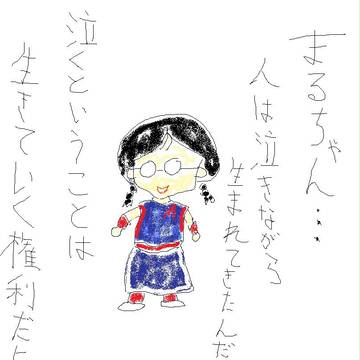 まるちゃん...
人は泣きながら
生まれてきたんだ
泣くということは
生きていく権利だよ